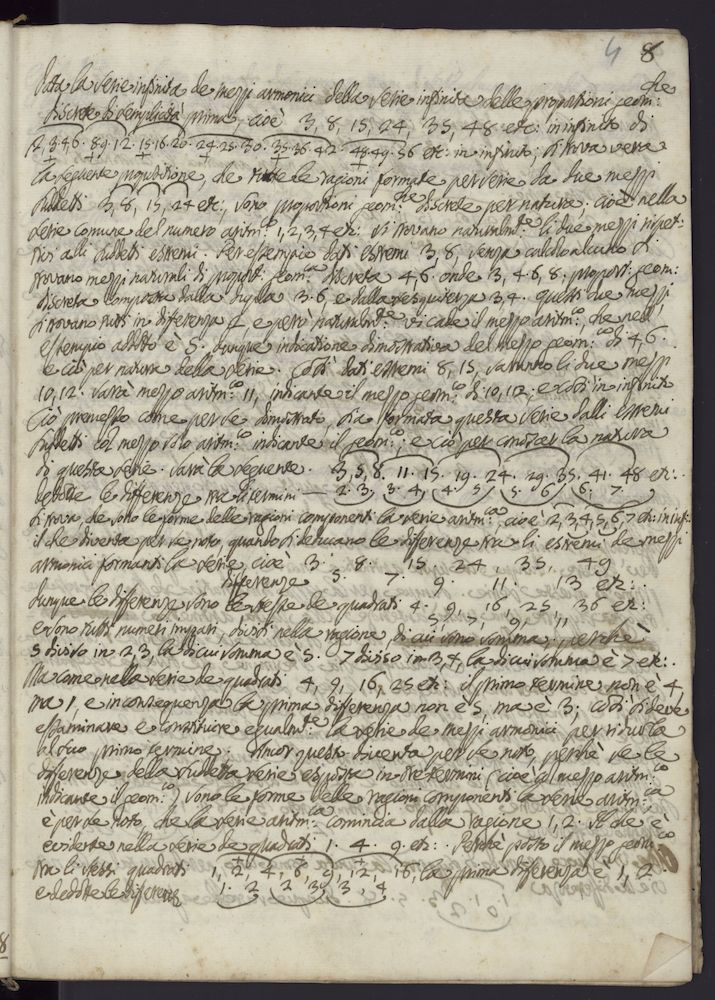 4 8
Data la serie infinita de mezzi armonici della serie infinita delle proporzioni geom:che
discrete di semplicità prima, cioè 3, 8, 15, 24, 35, 48 etc: in infinito di
3.4.6. 8.9.12. 15.16.20. 24.25.30. 35.36.42. 48.49.56 etc: in infinito; si trova vera
la seguente proposizione, che tutte le ragioni formate per serie da due mezzi
suddetti 3, 8, 15, 24 etc:, sono proporzioni geom:che discrete per natura; cioè nella
serie comune del numero aritm:co 1, 2, 3, 4 etc: si trovano naturalmte li due mezzi rispet:
tivi alli suddetti estremi. Per esempio dati estremi 3, 8, senza calcolo alcuno si
trovano mezzi naturali di proporz: geom:ca discreta 4, 6 onde 3, 4. 6, 8. proporz: geom:
discreta composta dalla dupla 3. 6, e dalla sesquiterza 3 4. questi due mezzi
si trovano tutti in differenza 2, e però naturalmte vi cade il mezzo aritm:co, che nell'
esempio addotto è 5. dunque indicatione dimostrativa del mezzo geom:co di 4, 6.
e ciò per natura della serie. Così dati estremi 8, 15, saranno li due mezzi
10, 12. sarà mezzo aritm:co 11, indicante il mezzo geom:co di 10, 12, e così in infinito
Ciò premesso come per se dimostrato, sia formata questa serie dalli estremi
suddetti col mezzo solo aritm:co indicante il geom:co; e ciò per conoscer la natura
di questa serie. Sarà la seguente. 3, 5, 8. 11. 15. 19. 24. 29. 35. 41. 48 etc:.
dedotte le differenze tra li termini — 2. 3, 3. 4, 4. 5, 5. 6, 6. 7.
si trova, che sono le forme delle ragioni componenti la serie aritm:ca, cioè 2, 3, 4, 5, 6, 7 etc: in inf:
il che diventa per se noto, quando si deducano le differenze tra li estremi de mezzi
armonici formanti la serie, cioè 3. 8. 15 24, 35, 49
differenze 5. 7. 9. 11. 13 etc:
dunque le differenze sono le stesse de quadrati 4. 9, 16, 25, 36 etc:
5, 7, 9, 11
e sono tutti numeri impari, divisi nella ragione di cui sono somma, perchè
5 diviso in 2, 3, la di cui somma è 5. 7 diviso in 3, 4, la di cui somma è 7 etc:.
Ma come nella serie de quadrati 4, 9, 16, 25 etc: il primo termine non è 4,
ma 1, e in conseguenza la prima differenza non è 5, ma è 3; così si deve
essaminare e constituire egualmte la serie de mezzi armonici per ridurla
al suo primo termine. Ancor questo diventa per se noto, perchè se le
differenze della suddetta serie esposta in tre termini (cioè col mezzo aritm:co
indicante il geom:co) sono le forme delle ragioni componenti la serie aritm:ca
è per se noto, che la serie aritm:ca comincia dalla ragione 1, 2. Il che è
evidente nella serie de quadrati 1. 4. 9 etc: Perchè posto il mezzo geom:co
tra li stessi quadrati 1, 2, 4, 6, 9, 12, 16, la prima differenza è 1, 2
e dedotte le differenze 1. 2 2 3, 3, 4